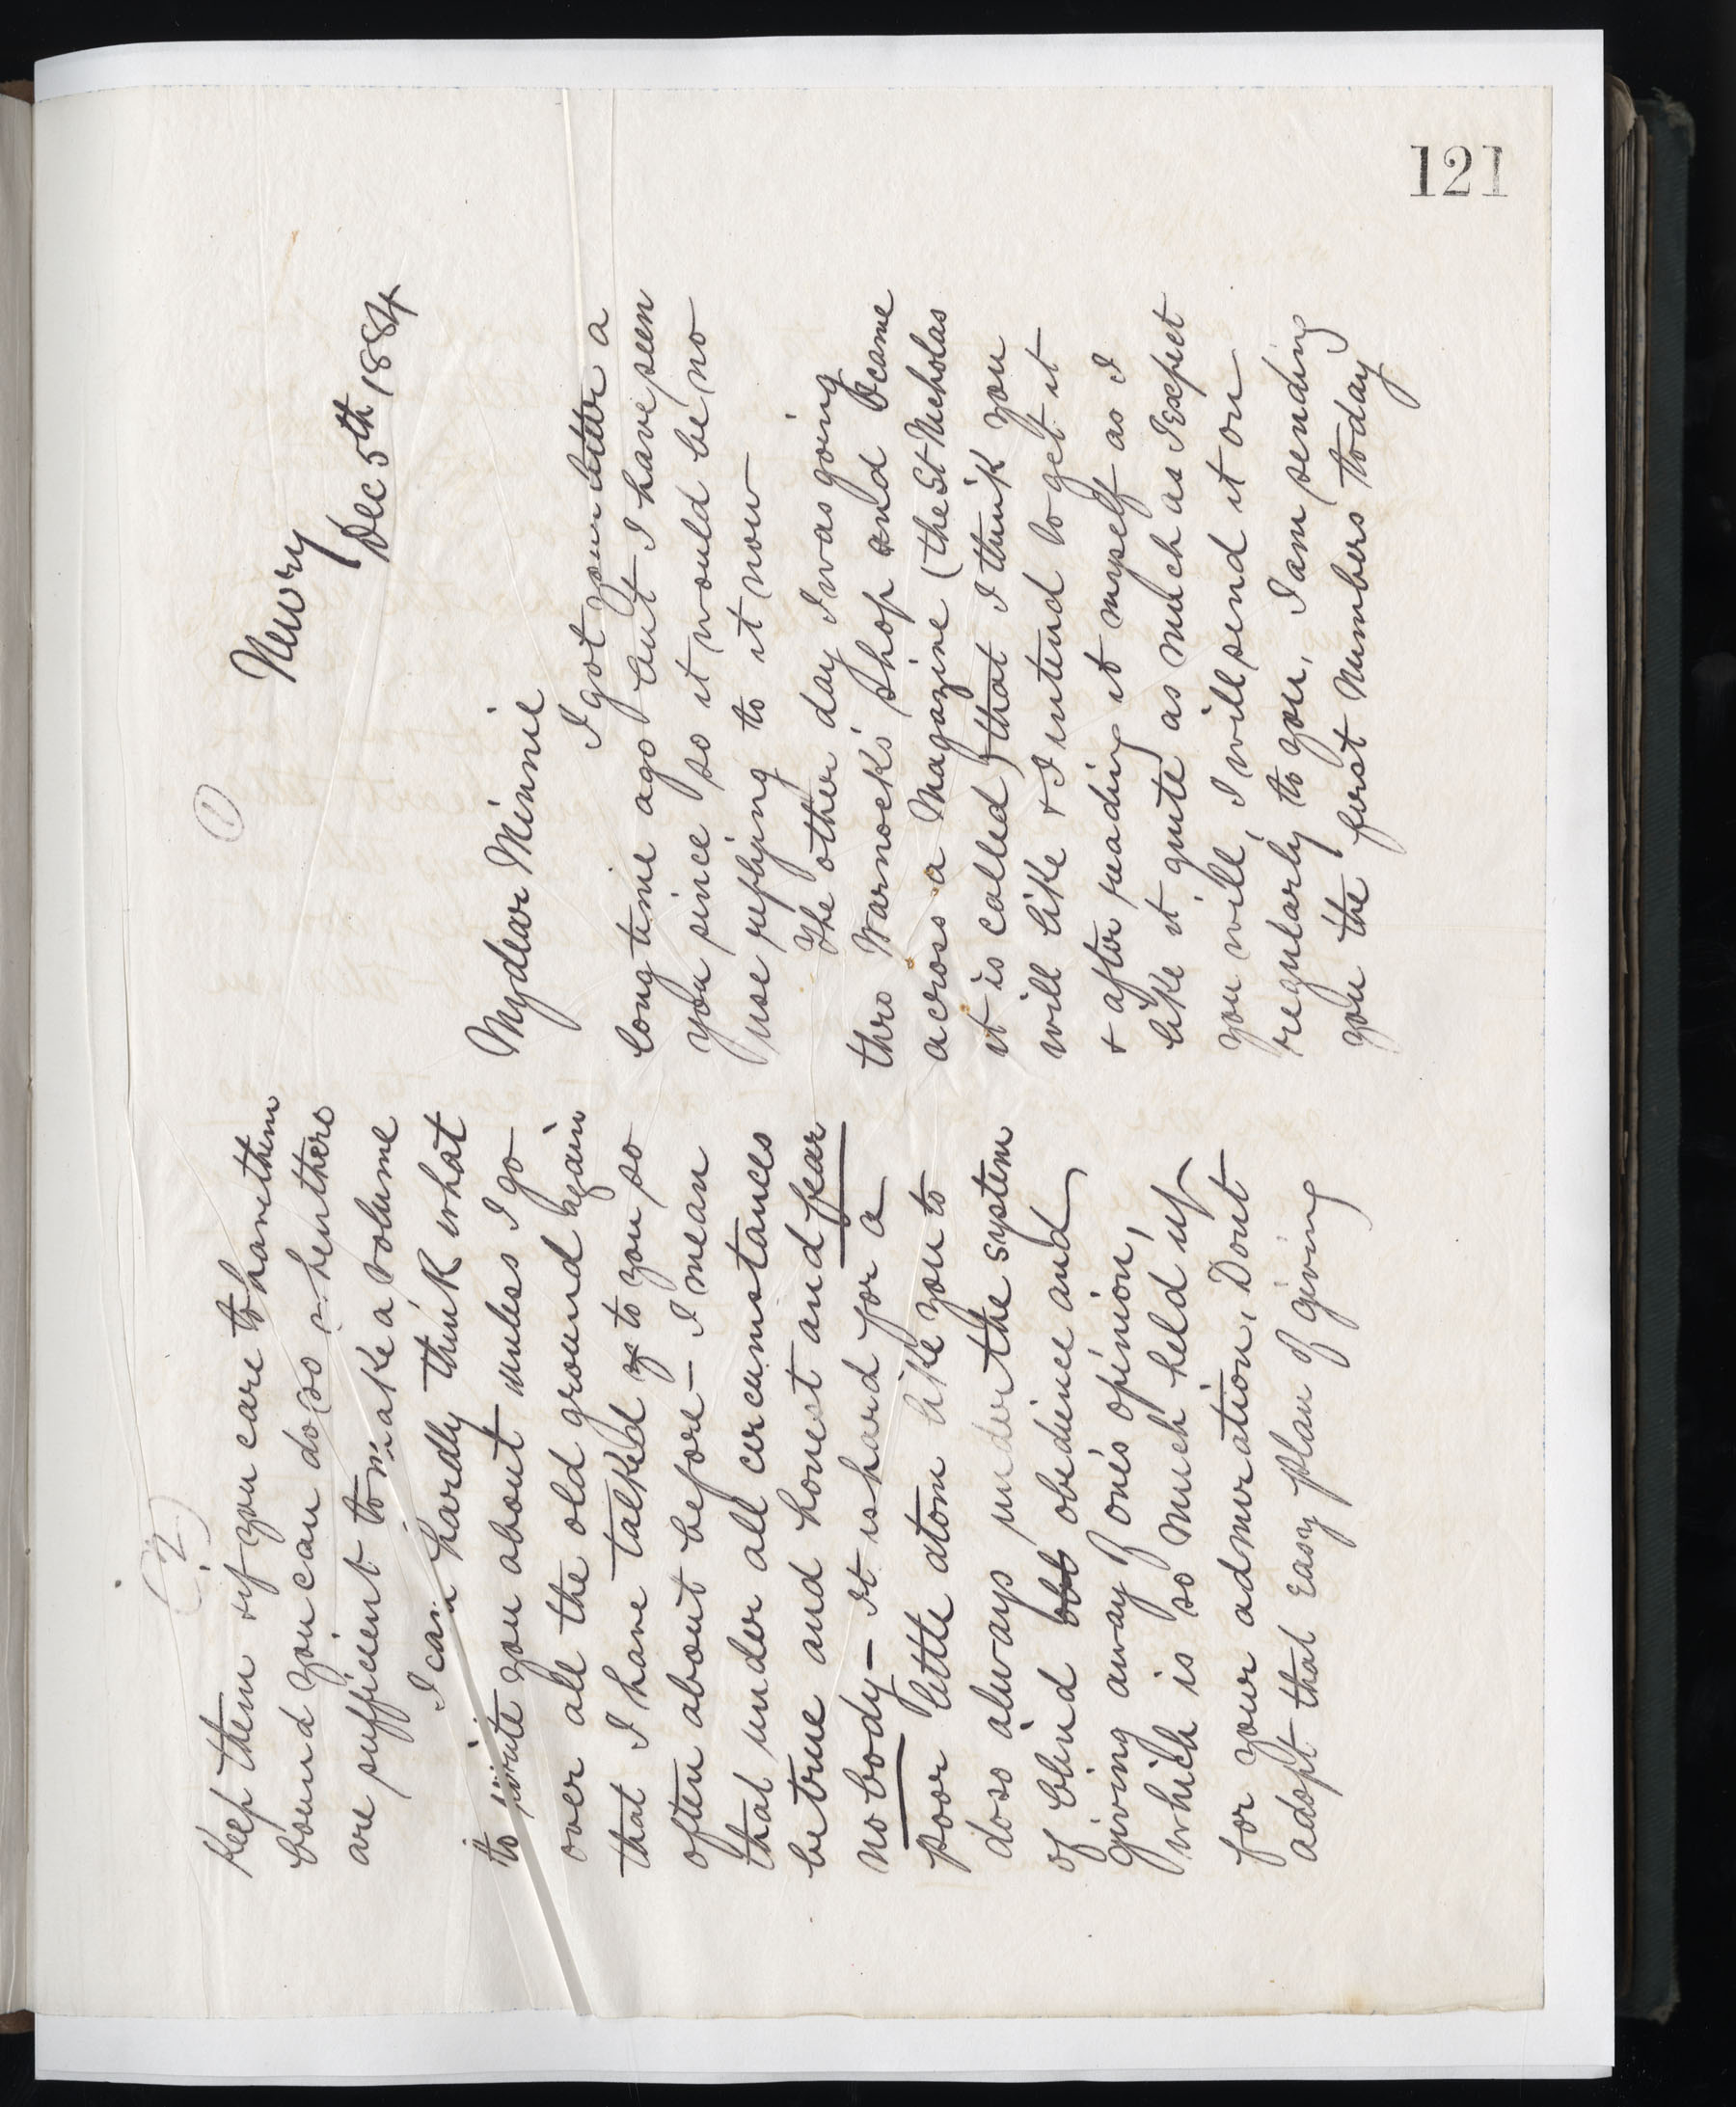 121
(1)
Newry
Dec 5th 1884
My dear Minnie
I got your letter a
long time ago but I have seen
you since so it would be no
use replying to it now
The other day I was going
thro Warnock's shop and I came
across a Magazine (the St Nicholas
it is called) that I think you
will like & I intend to get it
& after reading it myself as I
like it quite as much as I expect
you will, I will send it on
regularly to you, I am sending
you the first numbers today
(2)
Keep them if you care to have them
bound you can do so when there
are sufficient to make a volume
I can hardly think what
to write you about unless I go
over all the old ground again
that I have talked of to you so
often about before – I mean
that under all circumstances
be true and honest and fear
nobody – It is hard for a
poor little atom like you to
do so always under the system
of blind obt obedience and
giving away of one's opinion,
which is so much held up
for your admiration, Dont
adopt that easy plan of giving